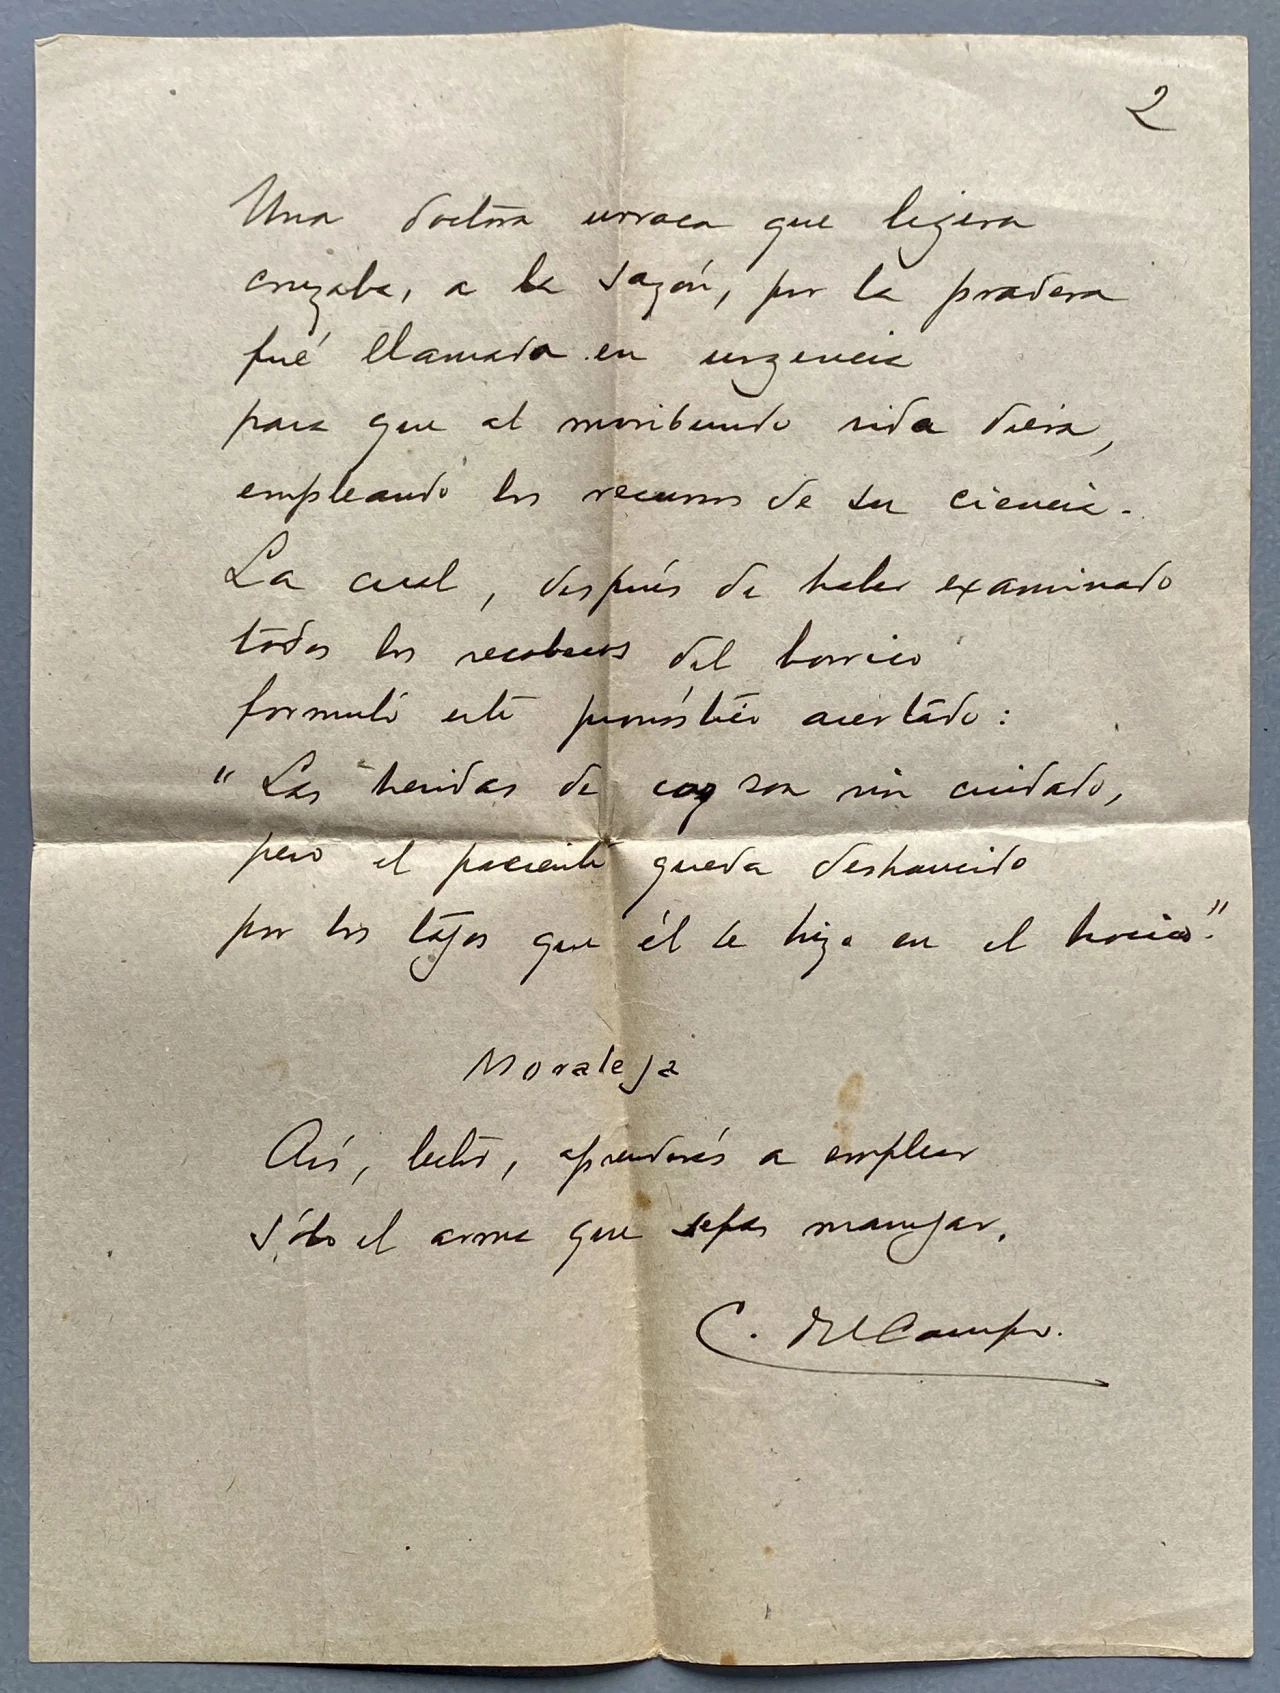 2
Una doctora urraca que ligera
cruzaba, a la sazón, por la pradera
fué llamada en urgencia
para que al moribundo vida diera,
empleando los recursos de su ciencia.
La cual, después de haber examinado
todos los recobecos del borrico
formuló este pronóstico acertado:
"Las heridas de coz son sin cuidado,
pero el paciente queda deshaucido
por los tajos que él se hizo en el hocico."
Moraleja
Así, lector, aprenderás a emplear
sólo el arma que sepas manejar.
C. del Campo.